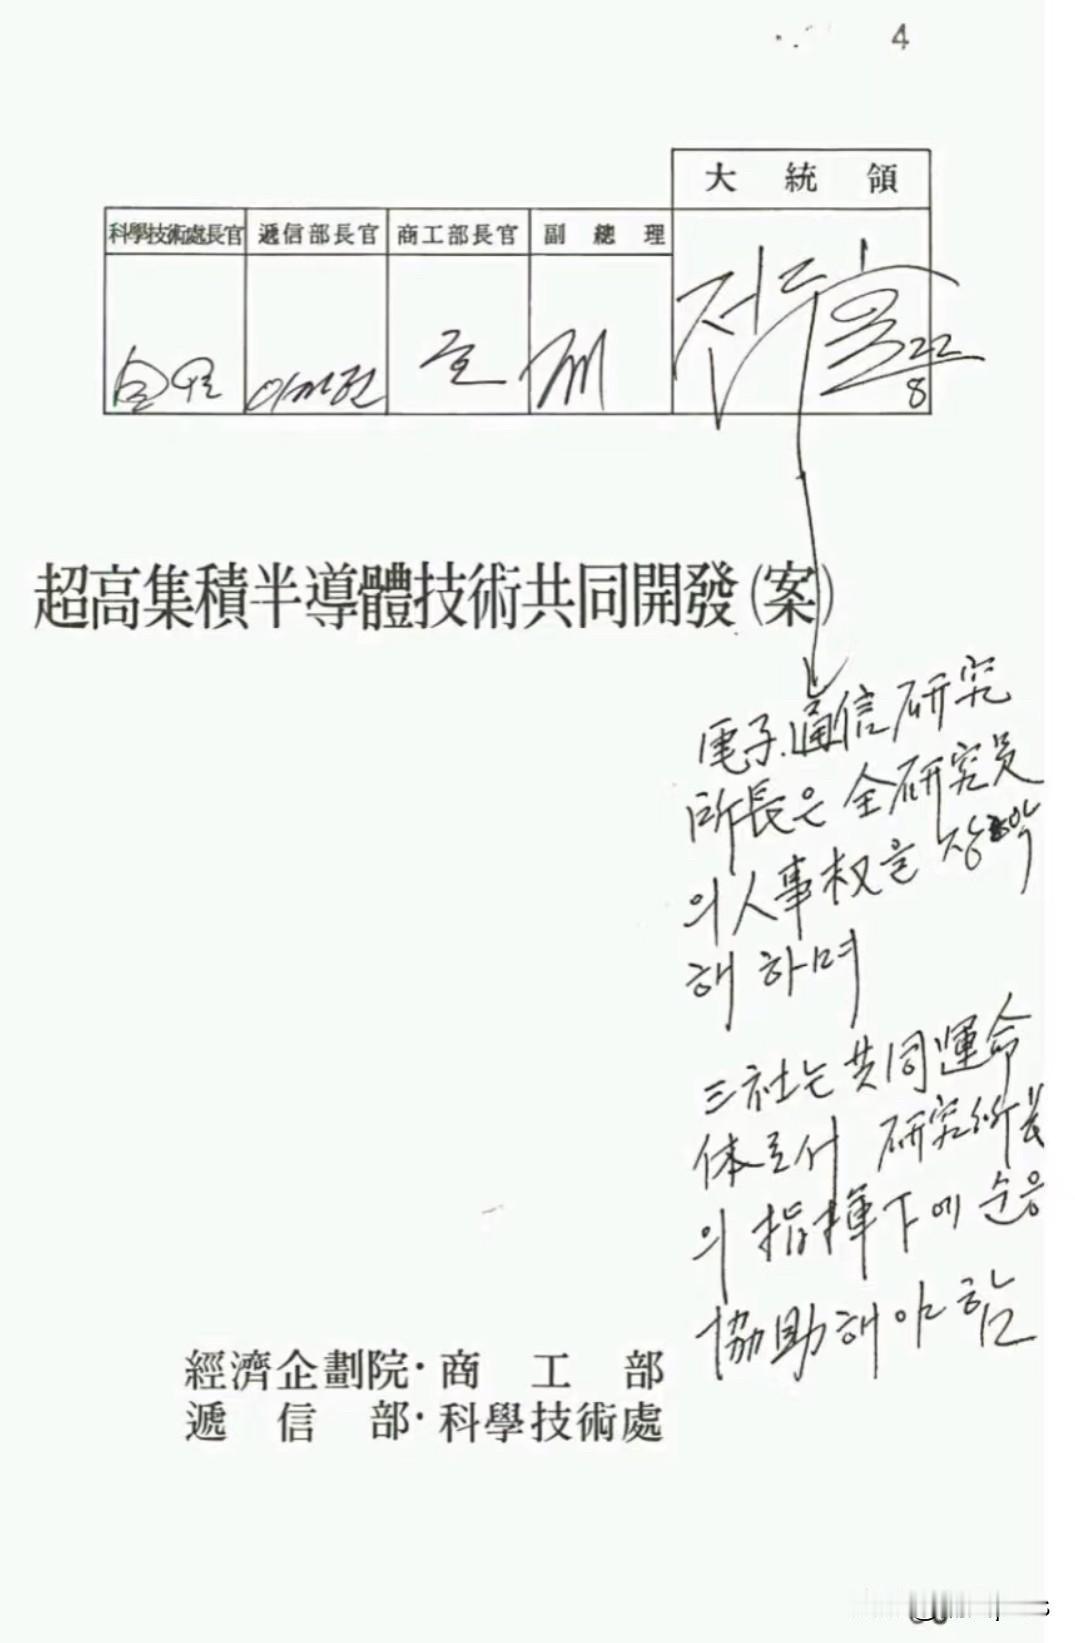 4
大統領
科學技術處長官 遞信部長官 商工部長官 副總理
전두환
22
8
超高集積半導體技術共同開發(案)
電子通信研究
所長은 全研究員
의 人事权을 장악
해 하며
三社는 共同運命
体로서 研究所長
의 指揮下에 순응
協助해야 함
經濟企劃院·商工部
遞信部·科學技術處